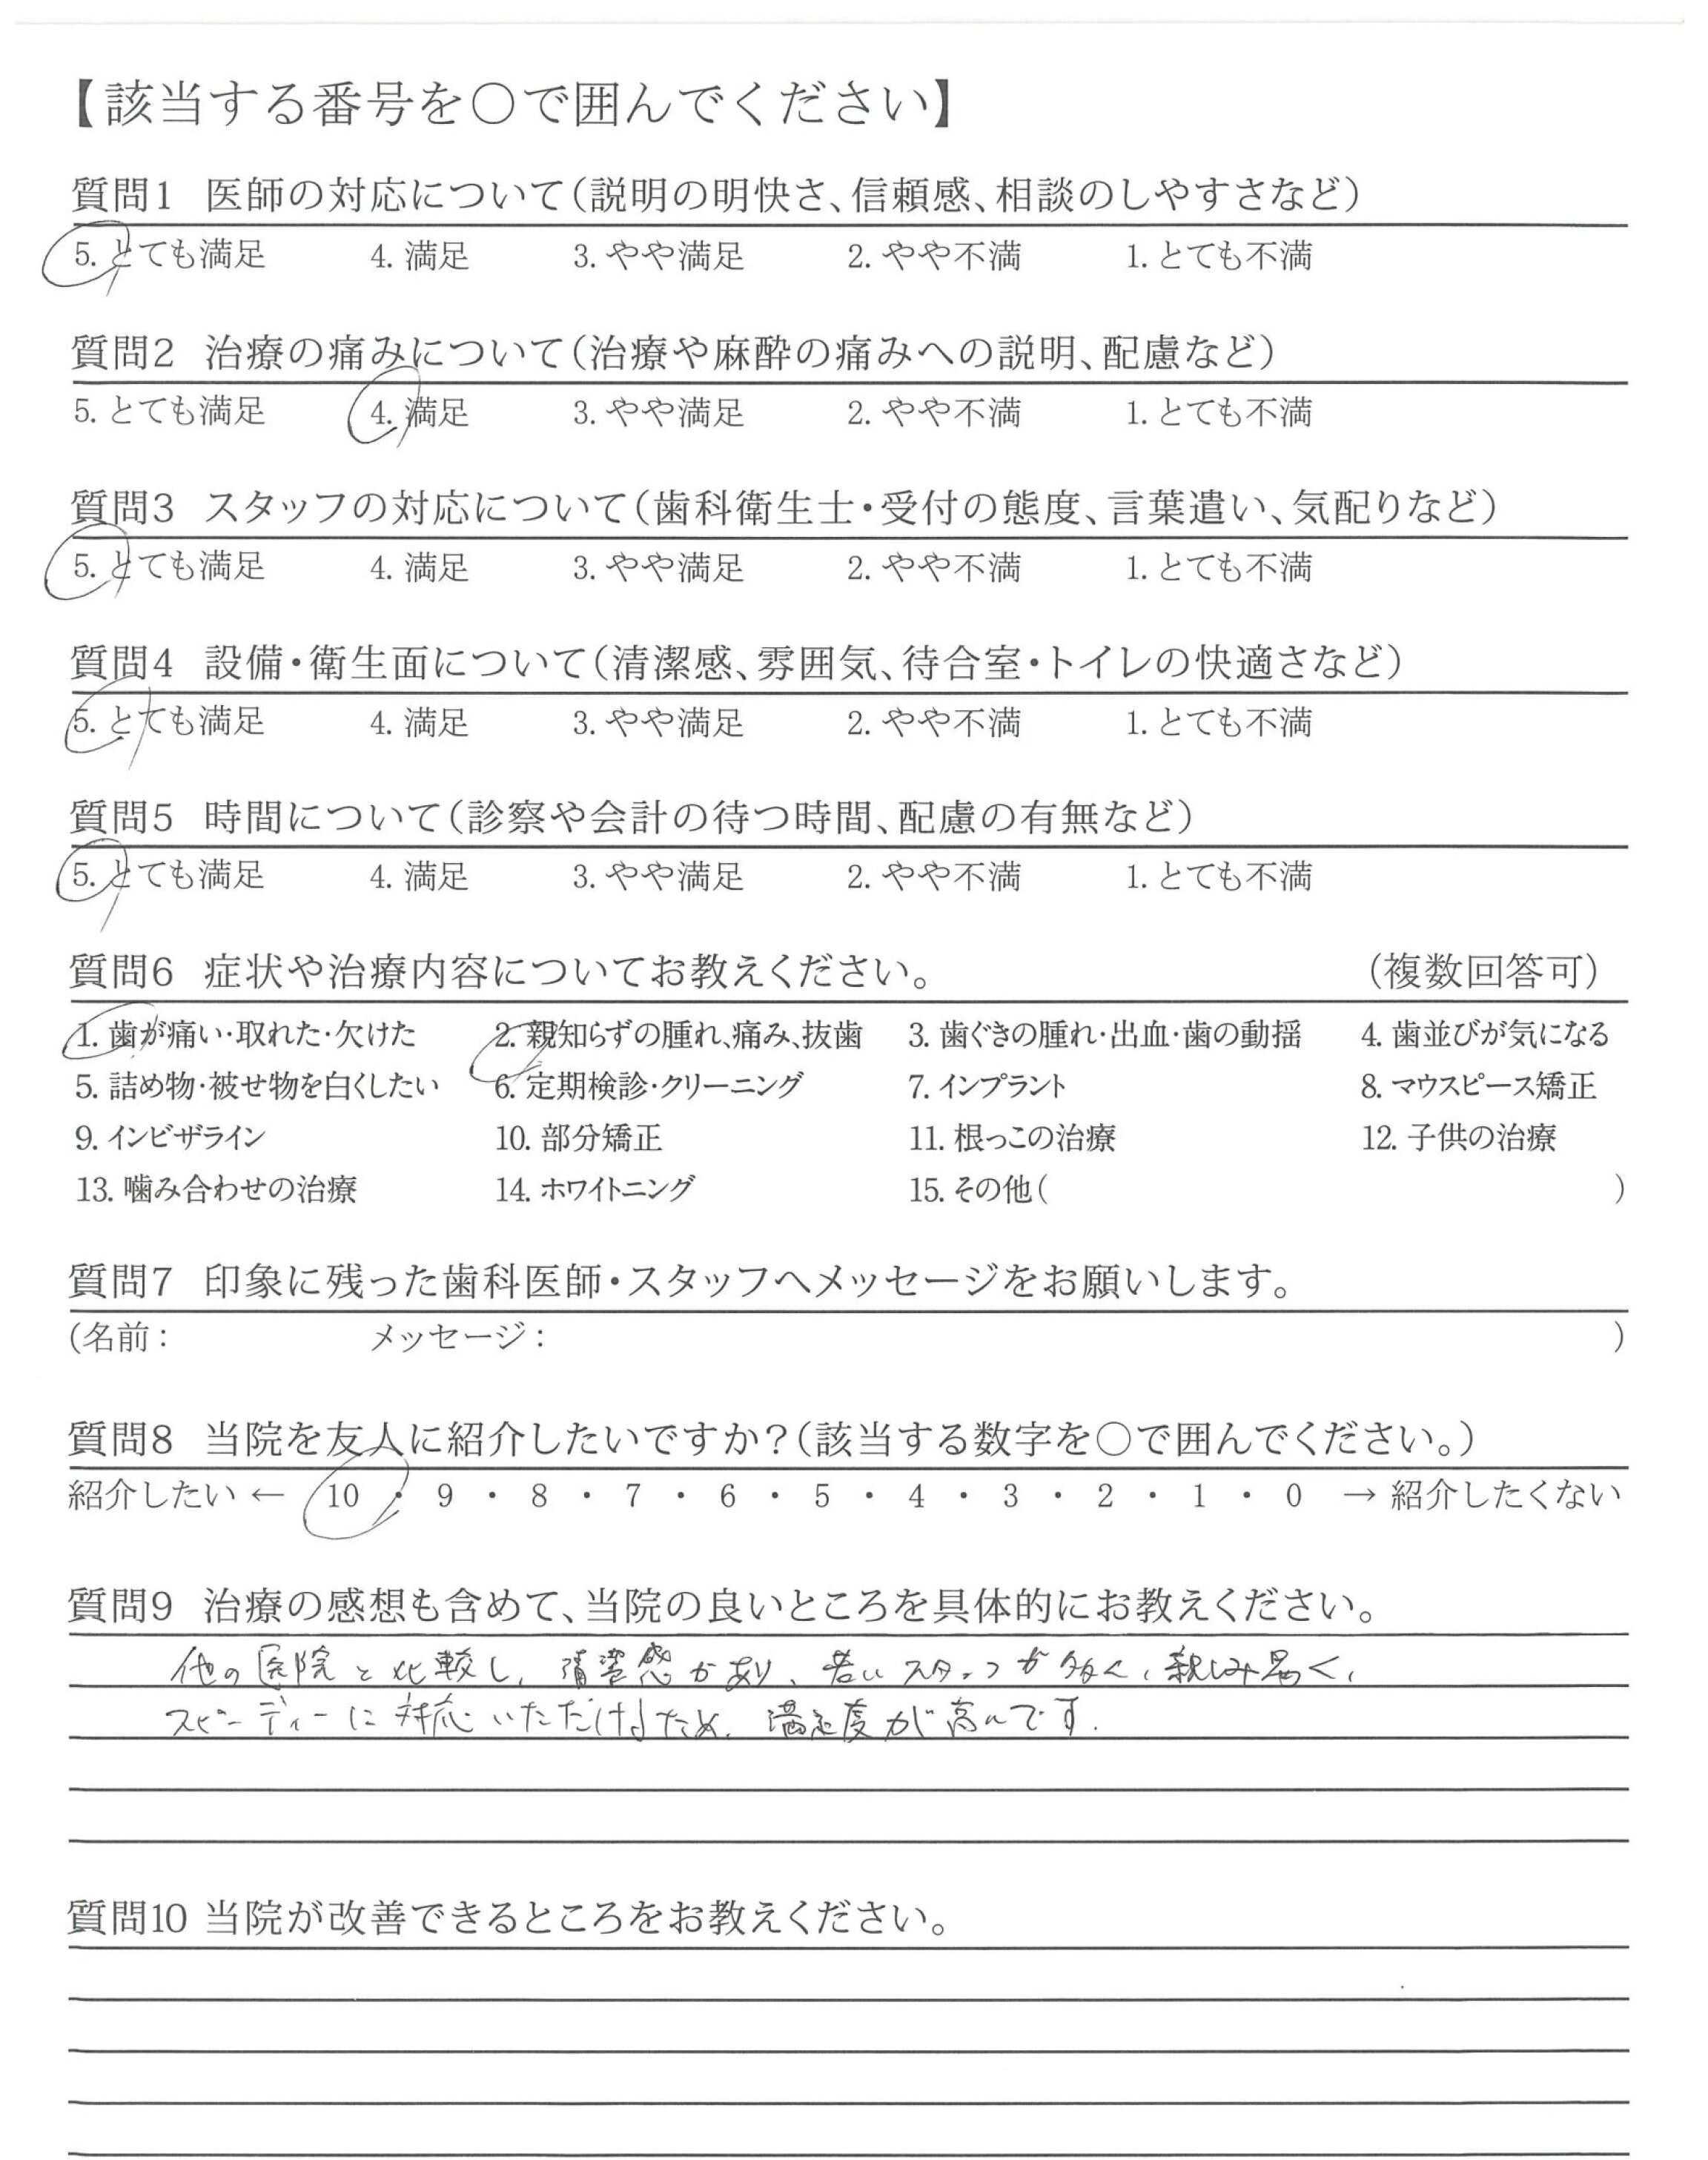 【該当する番号を○で囲んでください】
質問1 医師の対応について(説明の明快さ、信頼感、相談のしやすさなど)
5. とても満足 4. 満足 3. やや満足 2. やや不満 1. とても不満
質問2 治療の痛みについて(治療や麻酔の痛みへの説明、配慮など)
5. とても満足 4. 満足 3. やや満足 2. やや不満 1. とても不満
質問3 スタッフの対応について(歯科衛生士・受付の態度、言葉遣い、気配りなど)
5. とても満足 4. 満足 3. やや満足 2. やや不満 1. とても不満
質問4 設備・衛生面について(清潔感、雰囲気、待合室・トイレの快適さなど)
5. とても満足 4. 満足 3. やや満足 2. やや不満 1. とても不満
質問5 時間について(診察や会計の待つ時間、配慮の有無など)
5. とても満足 4. 満足 3. やや満足 2. やや不満 1. とても不満
質問6 症状や治療内容についてお教えください。 (複数回答可)
1. 歯が痛い・取れた・欠けた 2. 親知らずの腫れ、痛み、抜歯 3. 歯ぐきの腫れ・出血・歯の動揺 4. 歯並びが気になる
5. 詰め物・被せ物を白くしたい 6. 定期検診・クリーニング 7. インプラント 8. マウスピース矯正
9. インビザライン 10. 部分矯正 11. 根っこの治療 12. 子供の治療
13. 噛み合わせの治療 14. ホワイトニング 15. その他( )
質問7 印象に残った歯科医師・スタッフへメッセージをお願いします。
(名前: メッセージ: )
質問8 当院を友人に紹介したいですか?(該当する数字を○で囲んでください。)
紹介したい ← 10 ・ 9 ・ 8 ・ 7 ・ 6 ・ 5 ・ 4 ・ 3 ・ 2 ・ 1 ・ 0 → 紹介したくない
質問9 治療の感想も含めて、当院の良いところを具体的にお教えください。
他の医院と比較し、清潔感があり、若いスタッフが多く、親しみ易く、
スピーディーに対応いただけるため、満足度が高いです.
質問10 当院が改善できるところをお教えください。